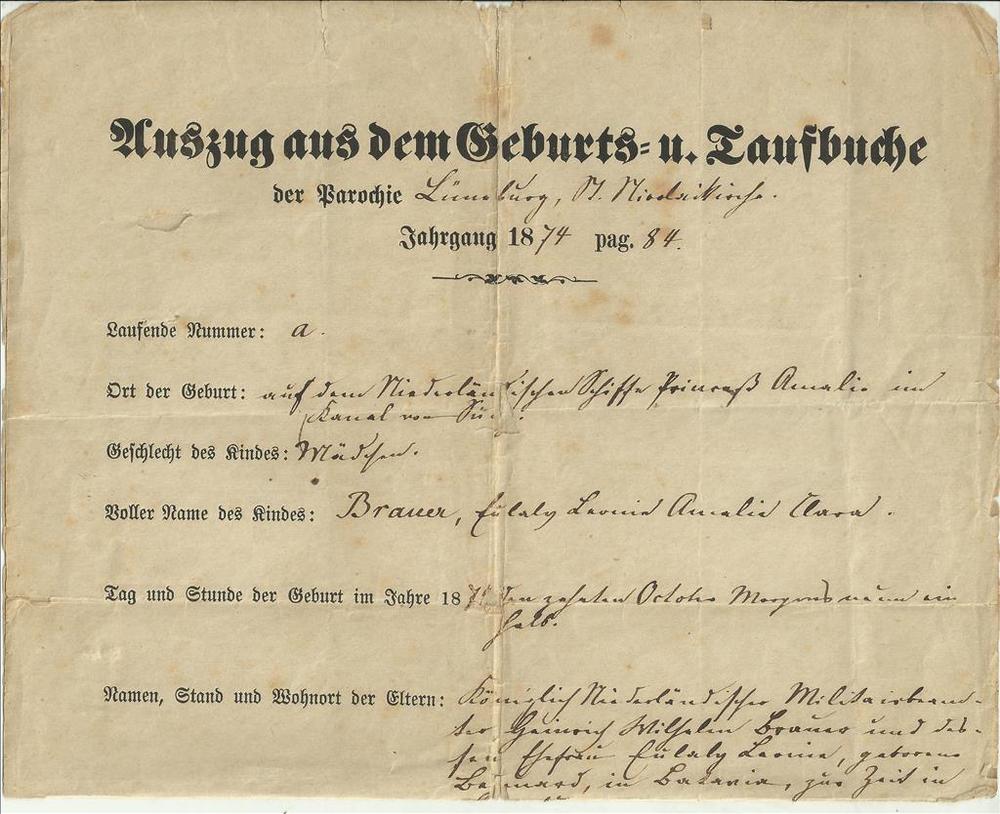 Auszug aus dem Geburts- u. Taufbuche
der Parochie Lüneburg, St. Nicolaikirche.
Jahrgang 1874 pag. 84.
Laufende Nummer: a.
Ort der Geburt: auf dem Niederländischen Schiffe Princeß Amalie im
Kanal von
Geschlecht des Kindes: Mädchen.
Voller Name des Kindes: Brauer, Eulaly Leonie Amalie Clara.
Tag und Stunde der Geburt im Jahre 187 den zehnten October Morgens neun ein
halb.
Namen, Stand und Wohnort der Eltern: Königlich Niederländischer Militairbeam-
ter Heinrich Wilhelm Brauer und des-
sen Ehefrau Eulaly Leonie, geborene
in Batavia, zur Zeit in